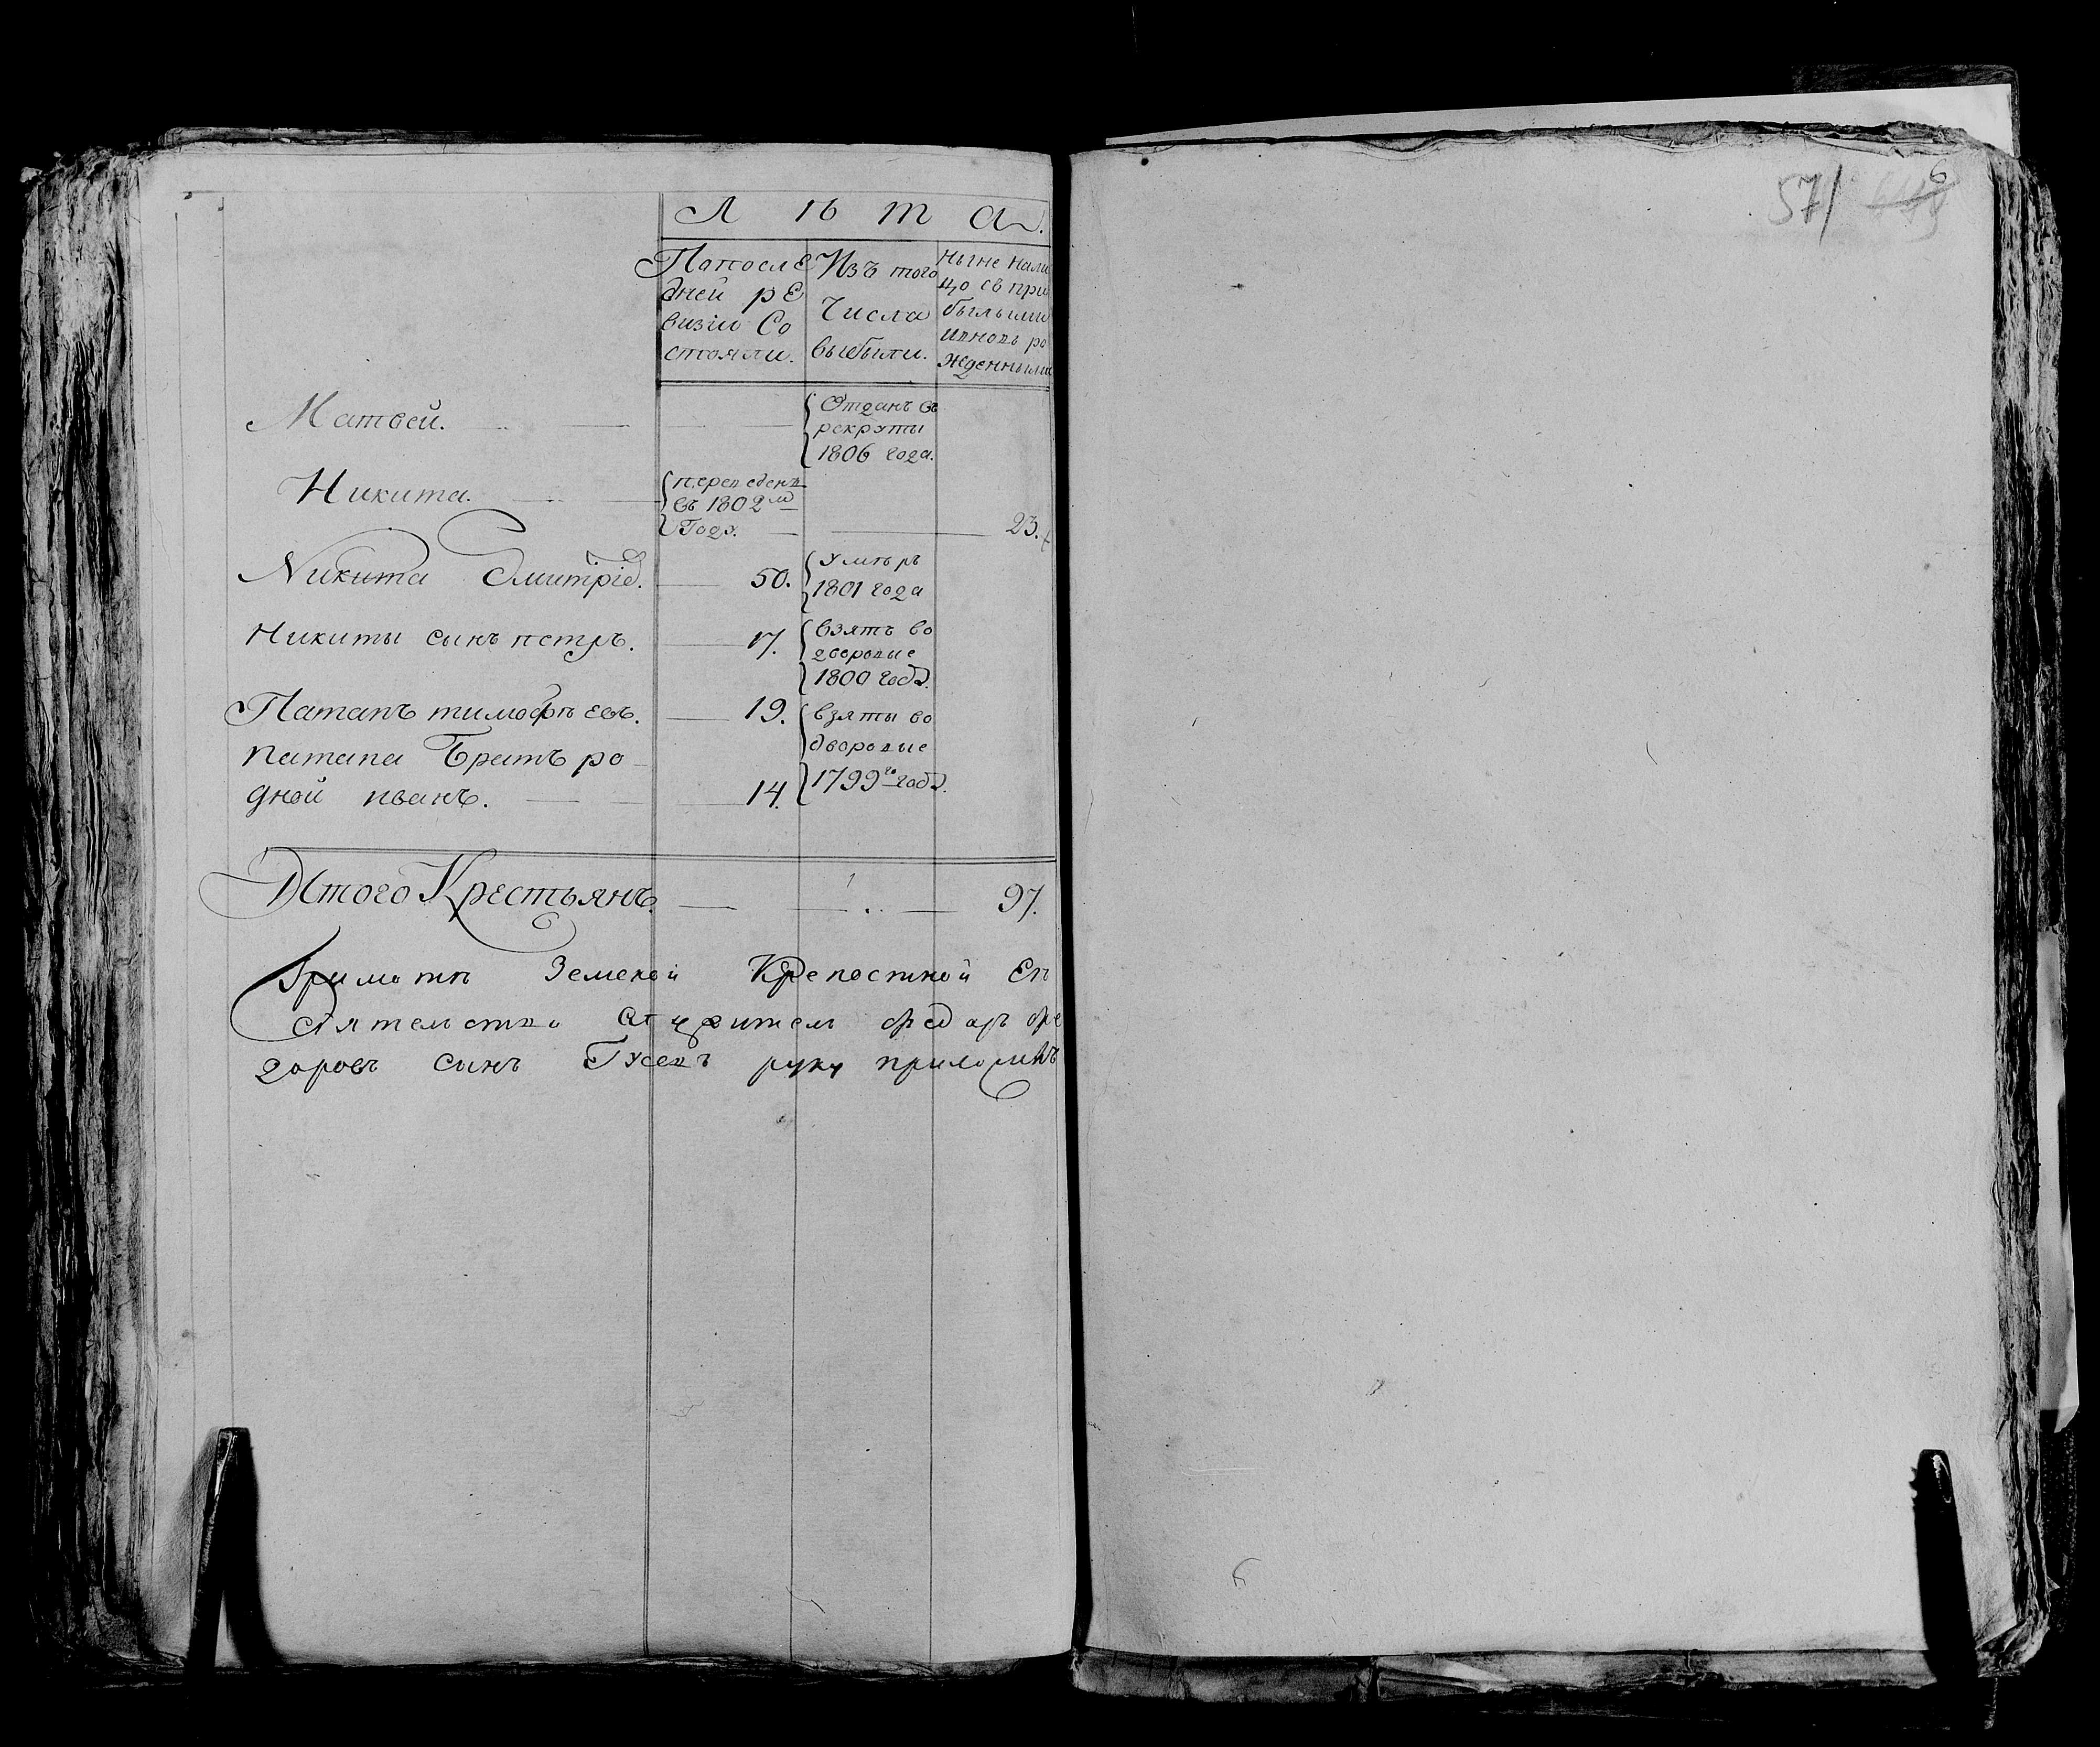 Лѣта.
Папосле
дней ре
визіи Со
стояли.
Изъ того
Числа
выбыли.
Ныне нали
цо съ при
былыми
ивновь ро
жденными
Матвей.
Отданъ въ
рекруты
1806 года.
Никита.
переведенъ
въ 1802м
Году.
23.
Никита Дмитріев.
50.
Умѣръ
1801 года
Никиты сынъ петръ.
17.
взятъ во
дворовые
1800 года.
Патапъ тимофѣевъ.
19.
взяты во
дворовые
1799го года.
Патапа Братъ ро
дной иванъ.
14.
Итого Крестьянъ.
97.
Земской Крепостной Ег
Сіятельства федоръ фе
доровъ сынъ Гусевъ руку приложилъ
571
6